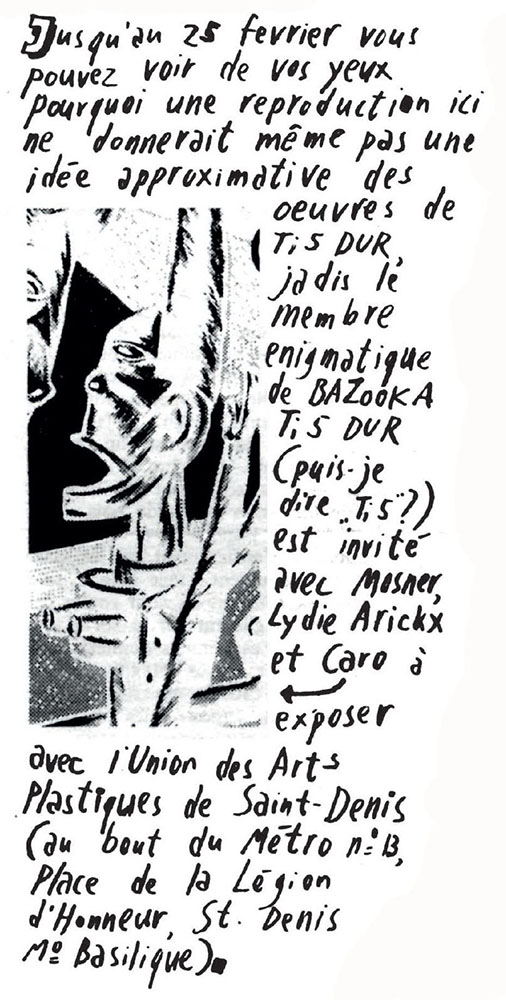 Jusqu'au 25 fevrier vous
pouvez voir de vos yeux
pourquoi une reproduction ici
ne donnerait même pas une
idée approximative des
oeuvres de
Ti5 DUR,
jadis le
membre
enigmatique
de BAZooKA
Ti5 DUR
(puis-je
dire „Ti5"?)
est invité
avec Mosner,
Lydie Arickx
et Caro à
exposer
avec l'Union des Arts
Plastiques de Saint-Denis
(au bout du Métro nº 13,
Place de la Légion
d'Honneur, St. Denis
Mº Basilique).